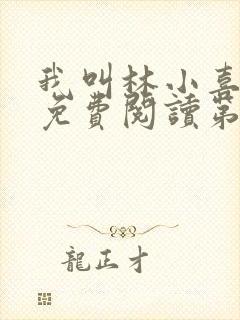 我叫林小喜
免費閱讀第
龍正才